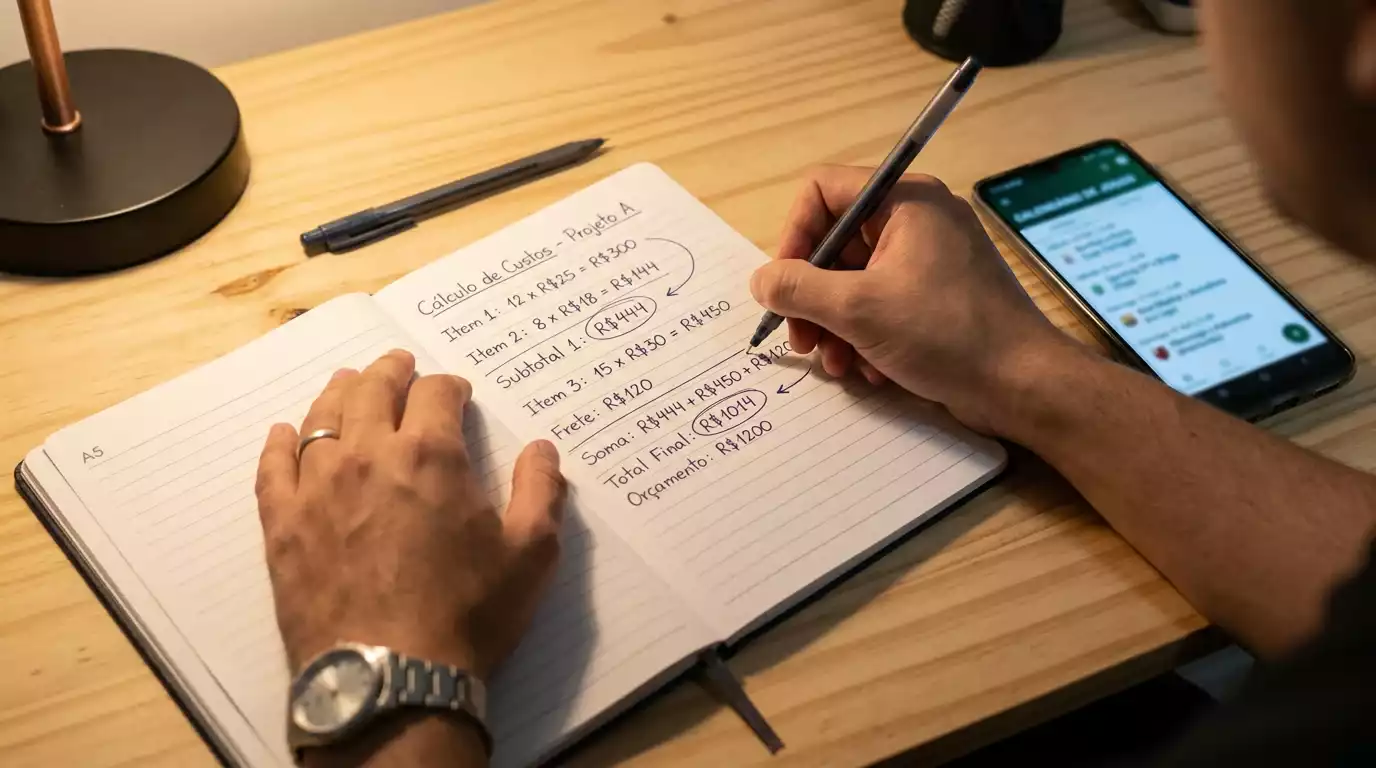 A5
Cálculo de Custos - Projeto A
Item 1: 12 x R$25 = R$300
Item 2: 8 x R$18 = R$144
Subtotal 1: R$444
Item 3: 15 x R$30 = R$450
Frete: R$120
Soma: R$444 + R$450 + R$120
Total Final: R$1014
Orçamento: R$1200